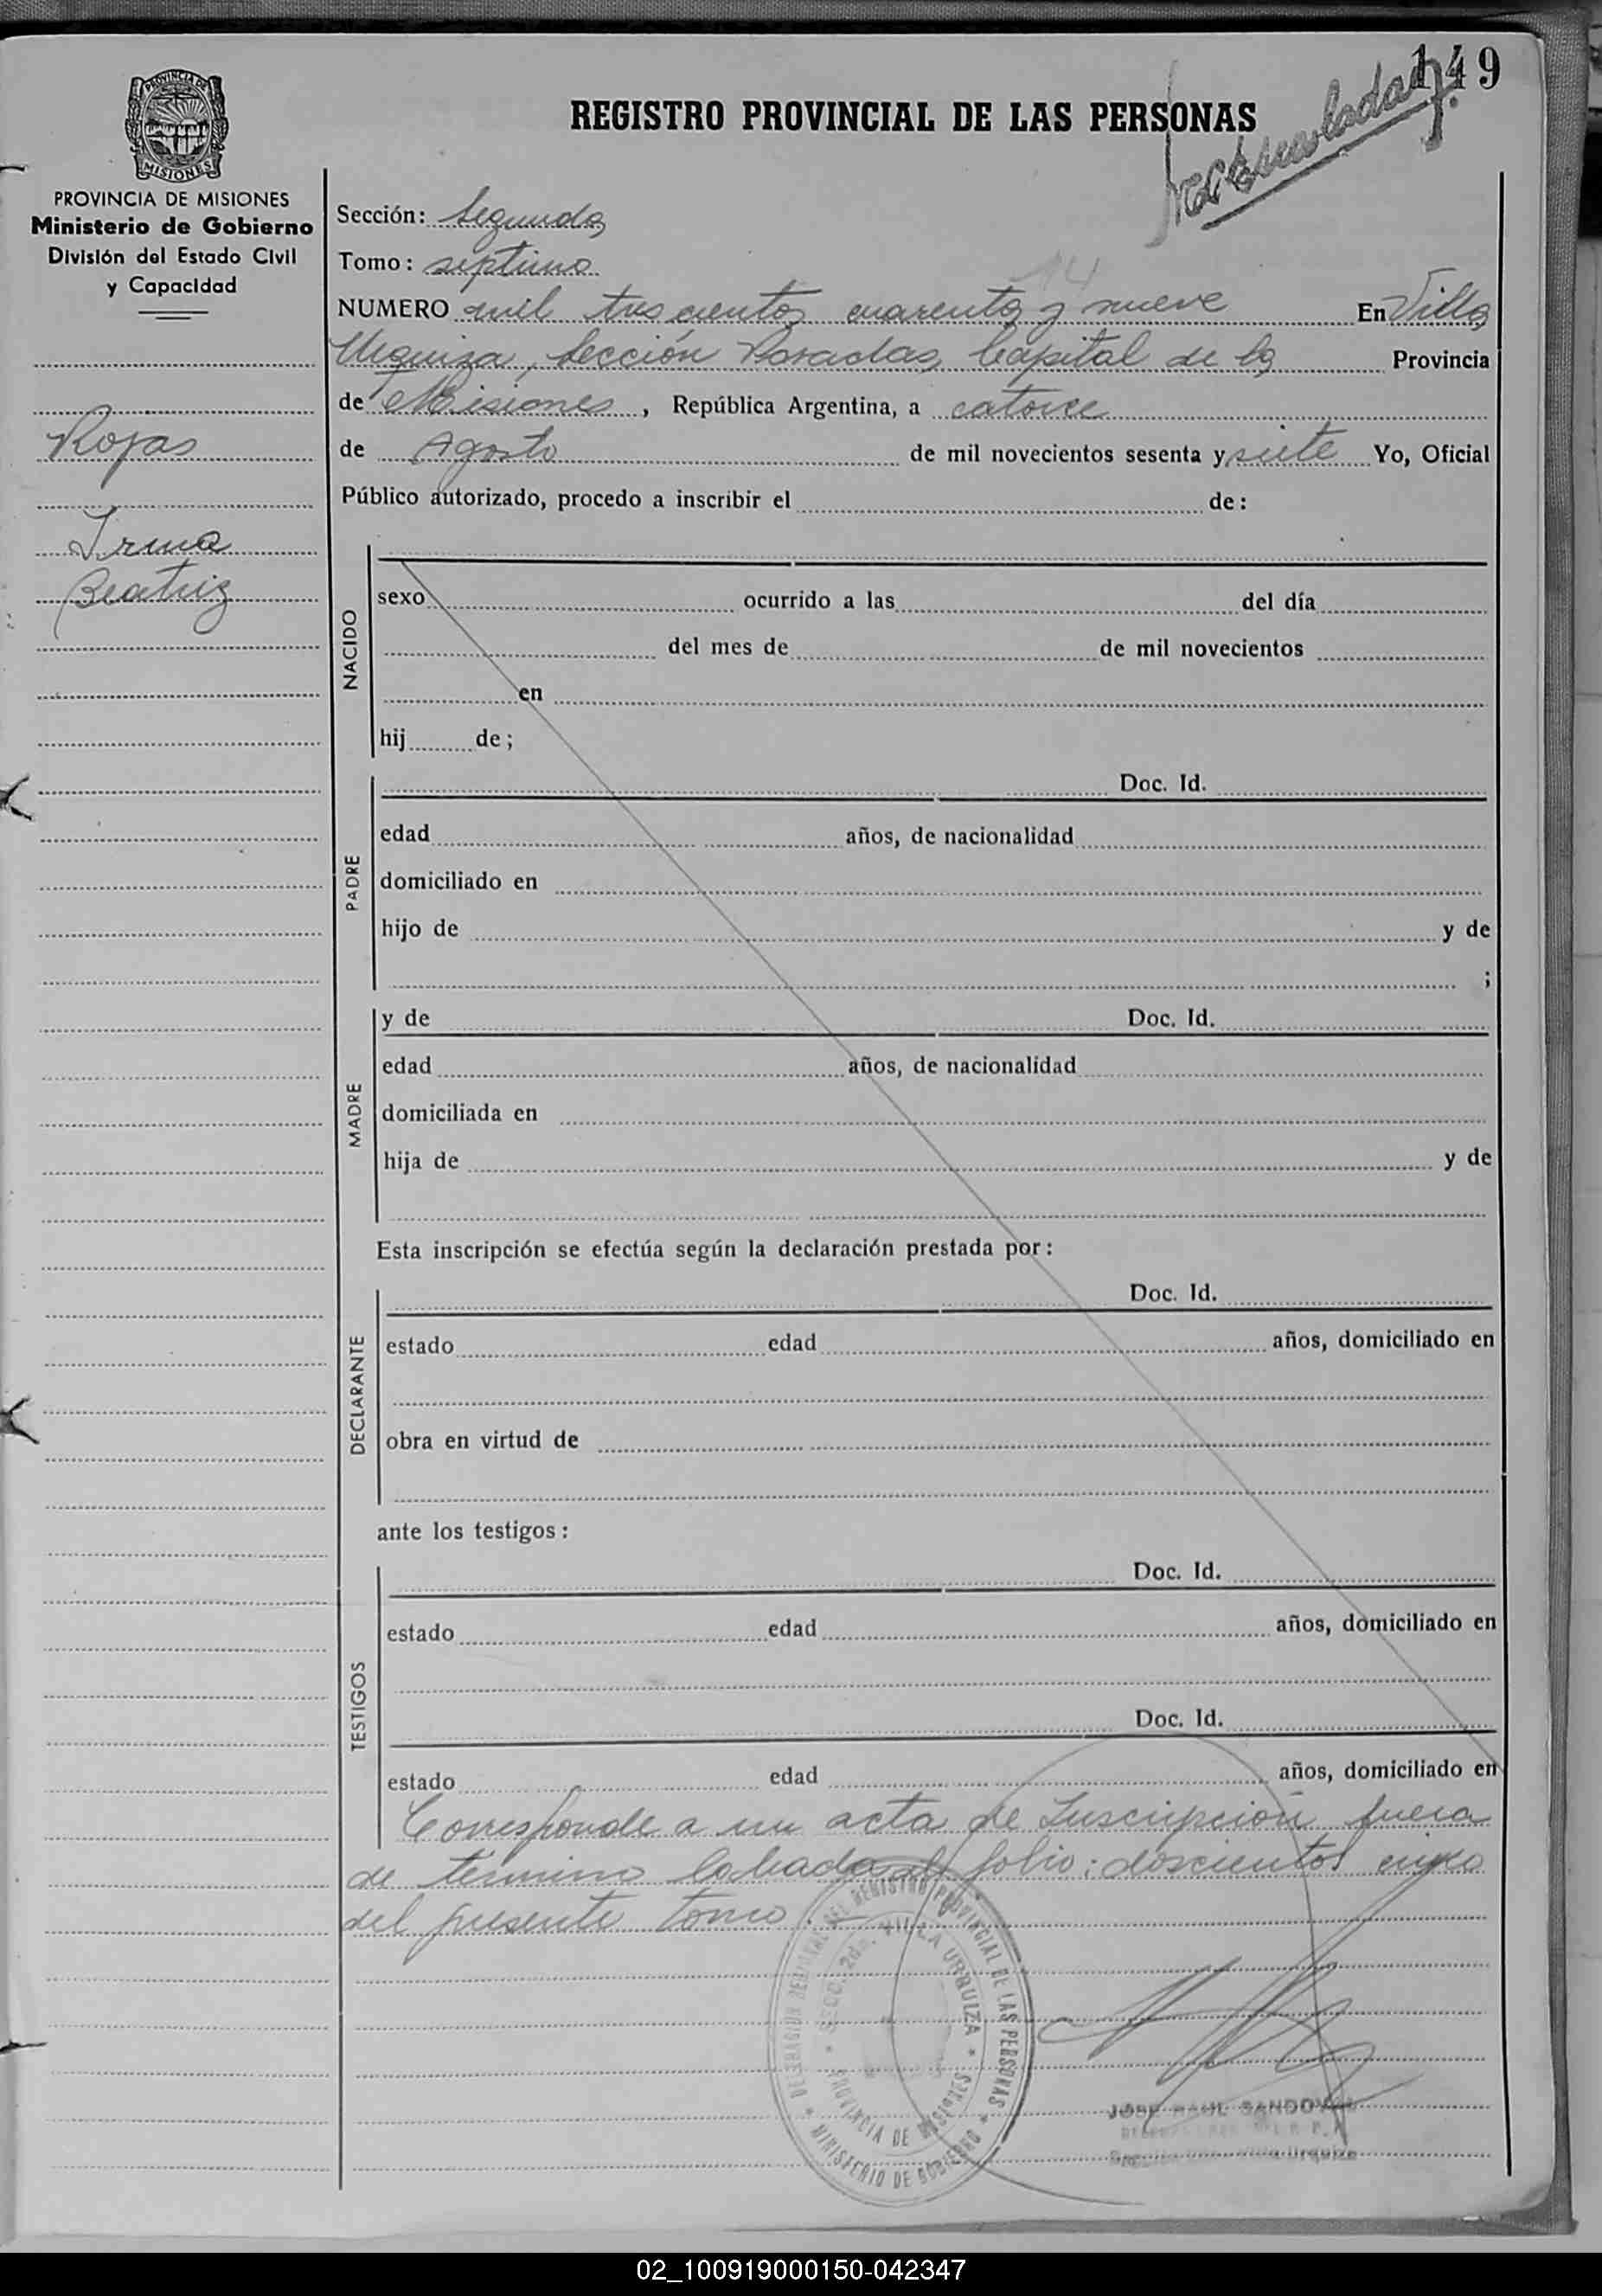 149
REGISTRO PROVINCIAL DE LAS PERSONAS
PROVINCIA DE
MISIONES
PROVINCIA DE MISIONES
Ministerio de Gobierno
División del Estado Civil
y Capacidad
Rojas
Irma
Beatriz
Sección: Segunda
Tomo: septimo
14
NUMERO mil trescientos cuarenta y nueve En Villa
Urquiza, Sección Posadas, Capital de la Provincia
de Misiones, República Argentina, a catorce
de Agosto de mil novecientos sesenta y siete Yo, Oficial
Público autorizado, procedo a inscribir el de:
NACIDO
sexo ocurrido a las del día
del mes de de mil novecientos
en
hij de;
PADRE
Doc. Id.
edad años, de nacionalidad
domiciliado en
hijo de y de
;
MADRE
y de Doc. Id.
edad años, de nacionalidad
domiciliada en
hija de y de
Esta inscripción se efectúa según la declaración prestada por:
DECLARANTE
Doc. Id.
estado edad años, domiciliado en
obra en virtud de
ante los testigos:
TESTIGOS
Doc. Id.
estado edad años, domiciliado en
Doc. Id.
estado edad años, domiciliado en
Corresponde a un acta de Inscripción fuera
de termino labrada al folio: doscientos cinco
del presente tomo.
DELEGACION REGIONAL DEL REGISTRO PROVINCIAL DE LAS PERSONAS
SECC. 2da. VILLA URQUIZA
PROVINCIA DE MISIONES
MINISTERIO DE GOBIERNO
JOSE RAUL SANDOVAL
Villa Urquiza
02_100919000150-042347